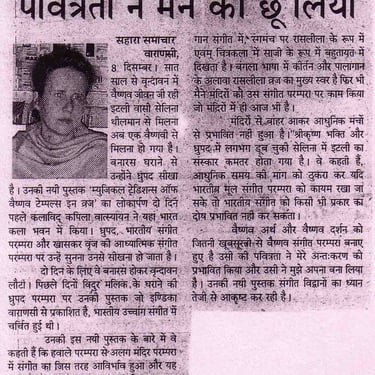 पवित्रता ने मन को छू लिया
सहारा समाचार
वाराणसी,
8 दिसम्बर। सात
साल से वृन्दावन में
वैष्णव जीवन जी रही
इटली वासी सेलिना
थीलमान से मिलना
अब एक वैष्णवी से
मिलना हो गया है।
बनारस घराने से
उन्होंने ध्रुपद सीखा
है। उनकी नयी पुस्तक 'म्युजिकल ट्रेडिशन्स ऑफ
वैष्णव टेम्पल्स इन व्रज' का लोकार्पण दो दिन
पहले कलाविद् कपिला वात्स्यायन ने यहां भारत
कला भवन में किया। ध्रुपद, भारतीय संगीत
परम्परा और खासकर वृज की आध्यात्मिक संगीत
परम्परा पर उन्हें सुनना उनसे सीखना हो जाता है।
दो दिन के लिए वे बनारस होकर वृन्दावन
लौटीं। पिछले दिनों विदुर मल्लिक के घराने की
ध्रुपद परम्परा पर उनकी पुस्तक जो इण्डिका
वाराणसी से प्रकाशित है, भारतीय उच्चांग संगीत में
चर्चित हुई थी।
उनकी इस नयी पुस्तक के बारे में वे
कहती हैं कि हवाले परम्परा से अलग मंदिर परम्परा
में संगीत का जिस तरह आविर्भाव हुआ और यह
गान संगीत में, रंगमंच पर रासलीला के रूप में
एवम् चित्रकला में साजों के रूप में बहुतायत में
दिखता है। बंगला भाषा में कीर्तन और पालागान
के अलावा रासलीला व्रज का मुख्य स्वर है फिर भी
मैंने मंदिरों की उस संगीत परम्परा पर काम किया
जो मंदिरों में ही आज भी है।
मंदिरों से बाहर आकर आधुनिक मंचों
से प्रभावित नहीं हुआ है। "श्रीकृष्ण भक्ति और
ध्रुपद में लगभग डूब चुकी सेलिना में इटली का
संस्कार कमतर होता गया है। वे कहती हैं,
आधुनिक समय की मांग को ठुकरा कर यदि
भारतीय मूल संगीत परम्परा को कायम रखा जा
सके तो भारतीय संगीत को किसी भी प्रकार का
दोष प्रभावित नहीं कर सकता।
वैष्णव अर्थ और वैष्णव दर्शन को
जितनी खूबसूरती से वैष्णव संगीत परम्परा बनाए
हुए है उसी की पवित्रता ने मेरे अन्तःकरण को
प्रभावित किया और उसी ने मुझे अपना बना लिया
है। उनकी नयी पुस्तक संगीत विद्वानों का ध्यान
तेजी से आकृष्ट कर रही है।